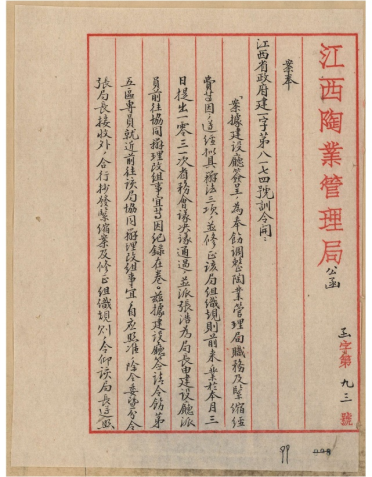 江西陶業管理局公函
字第九三號
案奉
江西省政府建一字第八一七四號訓令開：
「案據建設廳簽呈：為奉飭調整陶業管理局職務及緊縮經
費等因，遵經擬具辦法三項，並修正該局組織規則前來，業於本月三
日提出一零三二次省務會議決議通過，並派張浩為局長由建設廳派
員前往協同辦理改組事宜等因紀錄在卷。茲據建設廳簽請令飭第
五區專員就近前往該局協同辦理改組事宜，自應照准，除令委暨分令
張局長接收外，合行抄發緊縮案及修正組織規則，令仰該局長遵照
99